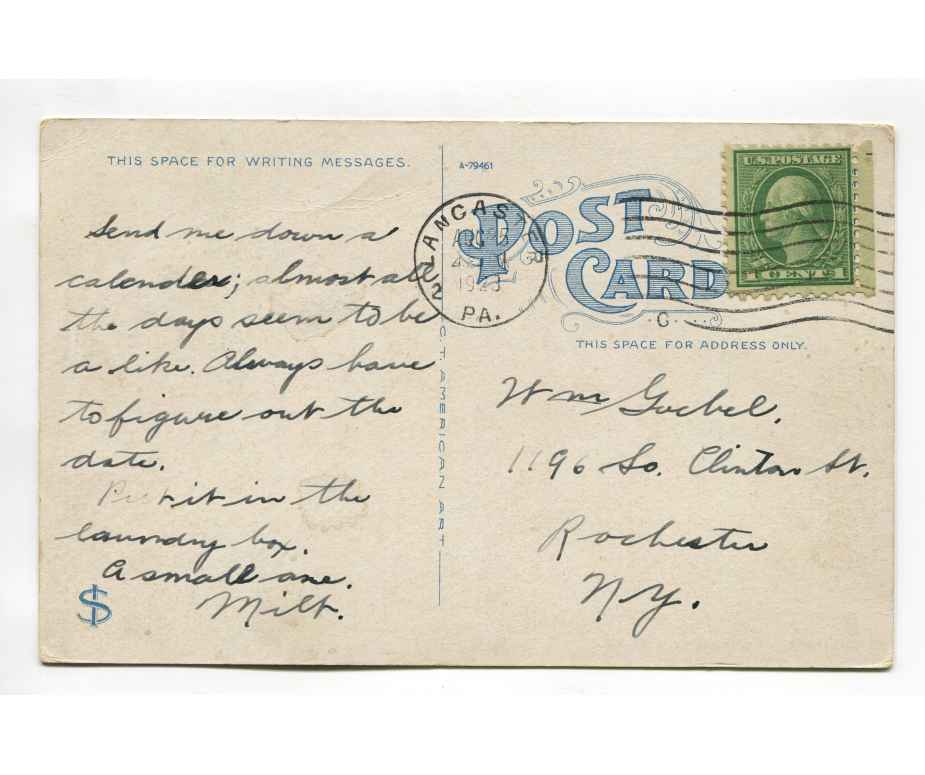 THIS SPACE FOR WRITING MESSAGES.
Send me down a
calender; almost all
the days seem to be
a like. Always have
to figure out the
date.
Put it in the
laundry box.
A small one.
Milt.
C. T. AMERICAN ART
A-79461
POST
CARD
LANCAS
1923
PA.
U.S. POSTAGE
1 CENTS 1
THIS SPACE FOR ADDRESS ONLY.
Wm Goebel.
1196 So. Clinton St.
Rochester
N.Y.